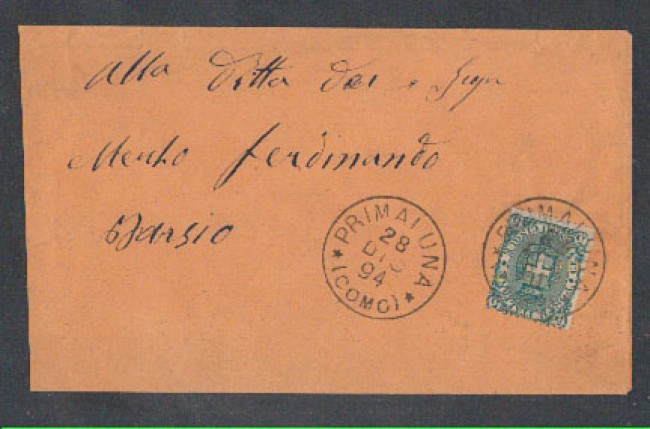 Alla Ditta dei Sigr
Merlo Ferdinando
Barsio
PRIMALUNA
28
DIC
94
(COMO)
PRIMALUNA